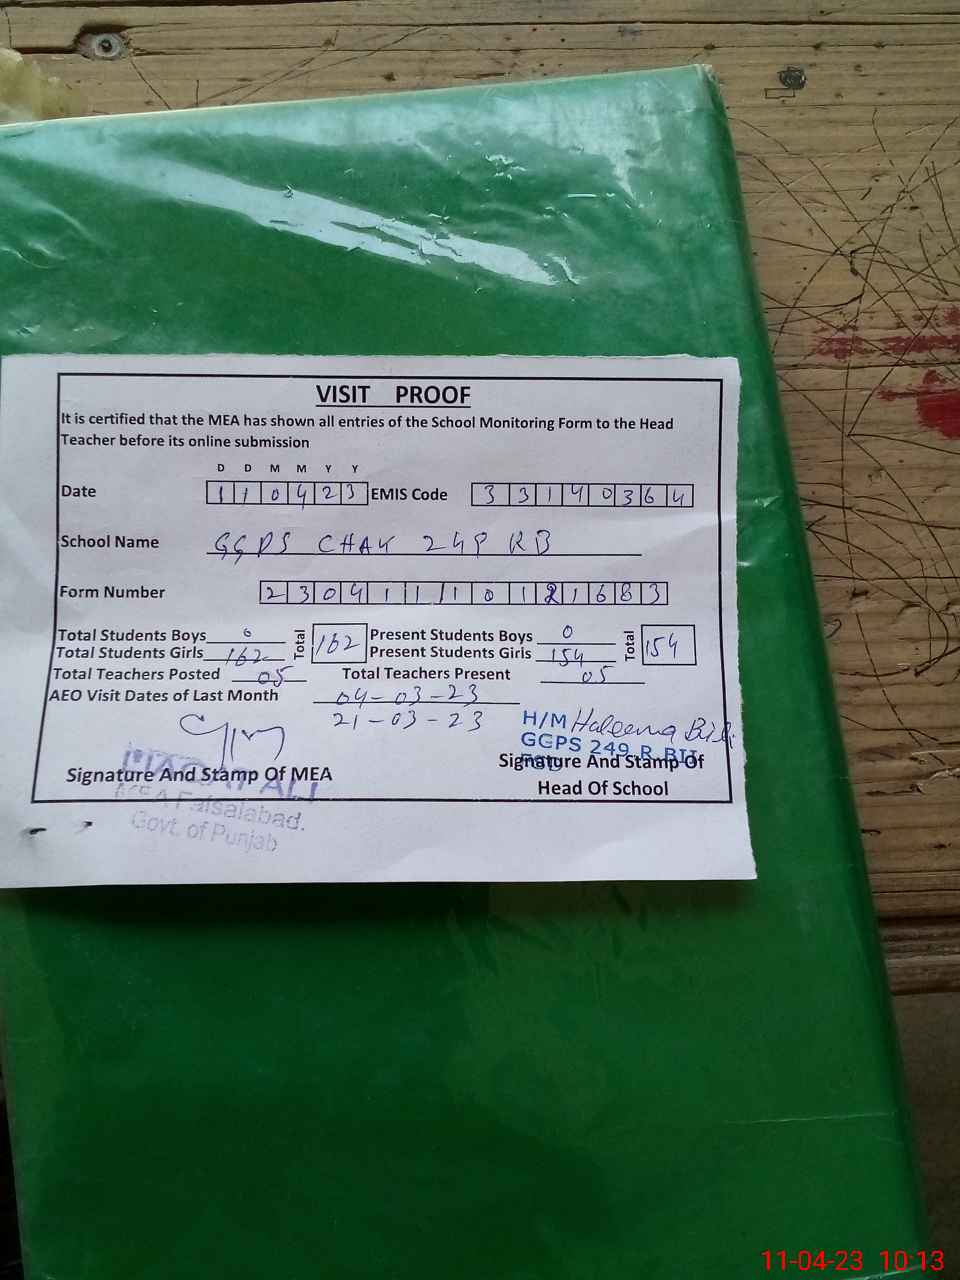 VISIT PROOF
It is certified that the MEA has shown all entries of the School Monitoring Form to the Head
Teacher before its online submission
D D M M Y Y
Date 110423 EMIS Code 33140364
School Name GGPS CHAK 249 RB
Form Number 230411110121683
Total Students Boys 0 Total 162 Present Students Boys 0 Total 154
Total Students Girls 162 Present Students Girls 154
Total Teachers Posted 05 Total Teachers Present 05
AEO Visit Dates of Last Month 04-03-23
21-03-23
H/M Haleema Bibi
GGPS 249 R.B
FSD
Signature And Stamp Of MEA
Signature And Stamp Of
Head Of School
ALI
MEA Faisalabad.
Govt. of Punjab
11-04-23 10:13